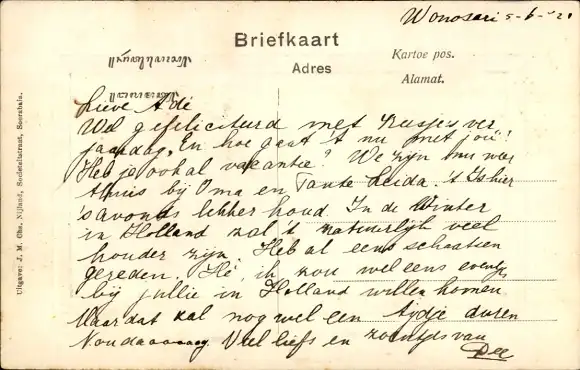 Wonosari 5-6-'21
Briefkaart
Kartoe pos.
Adres
Alamat.
Lieve Adé
Wel gefeliciteerd met Keesjes ver
jaardag. En hoe gaat 't nu met jou!
Heb je ook al vakantie? We zijn nu weer
thuis bij Oma en Tante Leida. 't Is hier
's avonds lekker koud. In de Winter
in Holland zal 't natuurlijk veel
kouder zijn. Heb al eens schaatsen
gereden. Hè, ik zou wel eens eventjes
bij jullie in Holland willen komen
Maar dat zal nog wel een tijdje duren
Nou daaaaaag Veel liefs en zoentjes van
Dee
Uitgave: J. M. Chs. Nijland, Societeitstraat, Soerabaia.